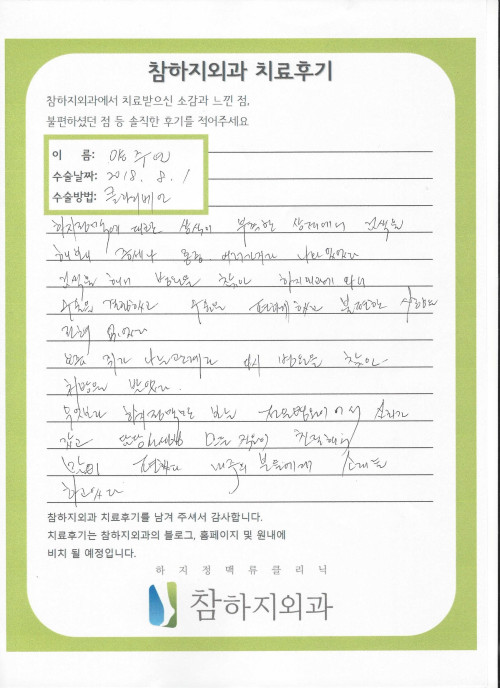 참하지외과 치료후기
참하지외과에서 치료받으신 소감과 느낀 점,
불편하셨던 점 등 솔직한 후기를 적어주세요
이 름: 주연
수술날짜: 2018. 8. 1
수술방법: 클라리베인
하지정맥에 대한 상식이 부족한 상태에서 검색을
해보니 증세나 여러가지가 나와 있었다
검색을 해서 병원을 찾아 하지외과에 와서
수술을 결정하고 수술을 편하게 했고 불편한 사항은
전혀 없었다
다시 병원을 찾아
처방을 받았다.
무엇보다 하지정맥만 보는 전문병원이어서
갖고 모든 직원이 친절해서
편했다 내 주위 분들에게 소개를
하고있다
참하지외과 치료후기를 남겨 주셔서 감사합니다.
치료후기는 참하지외과의 블로그, 홈페이지 및 원내에
비치 될 예정입니다.
하지정맥류클리닉
참하지외과